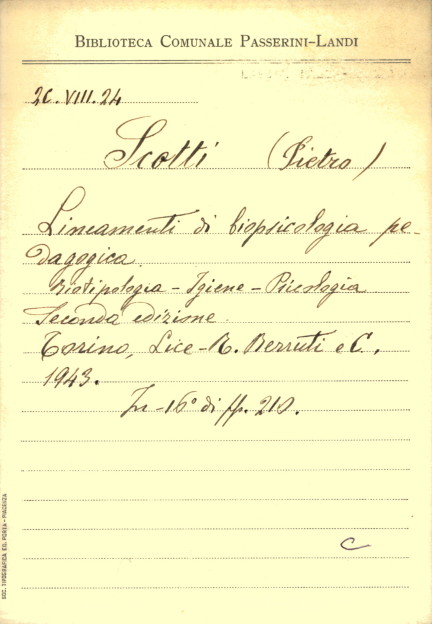 BIBLIOTECA COMUNALE PASSERINI-LANDI
2C.VIII.24
Scotti (Pietro)
Lineamenti di biopsicologia pe-
dagogica.
Biotipologia - Igiene - Psicologia
Seconda edizione.
Torino, Lice - R. Berruti e C.,
1943.
In-16° di pp. 210.
C
SOC. TIPOGRAFICA ED. PORTA - PIACENZA